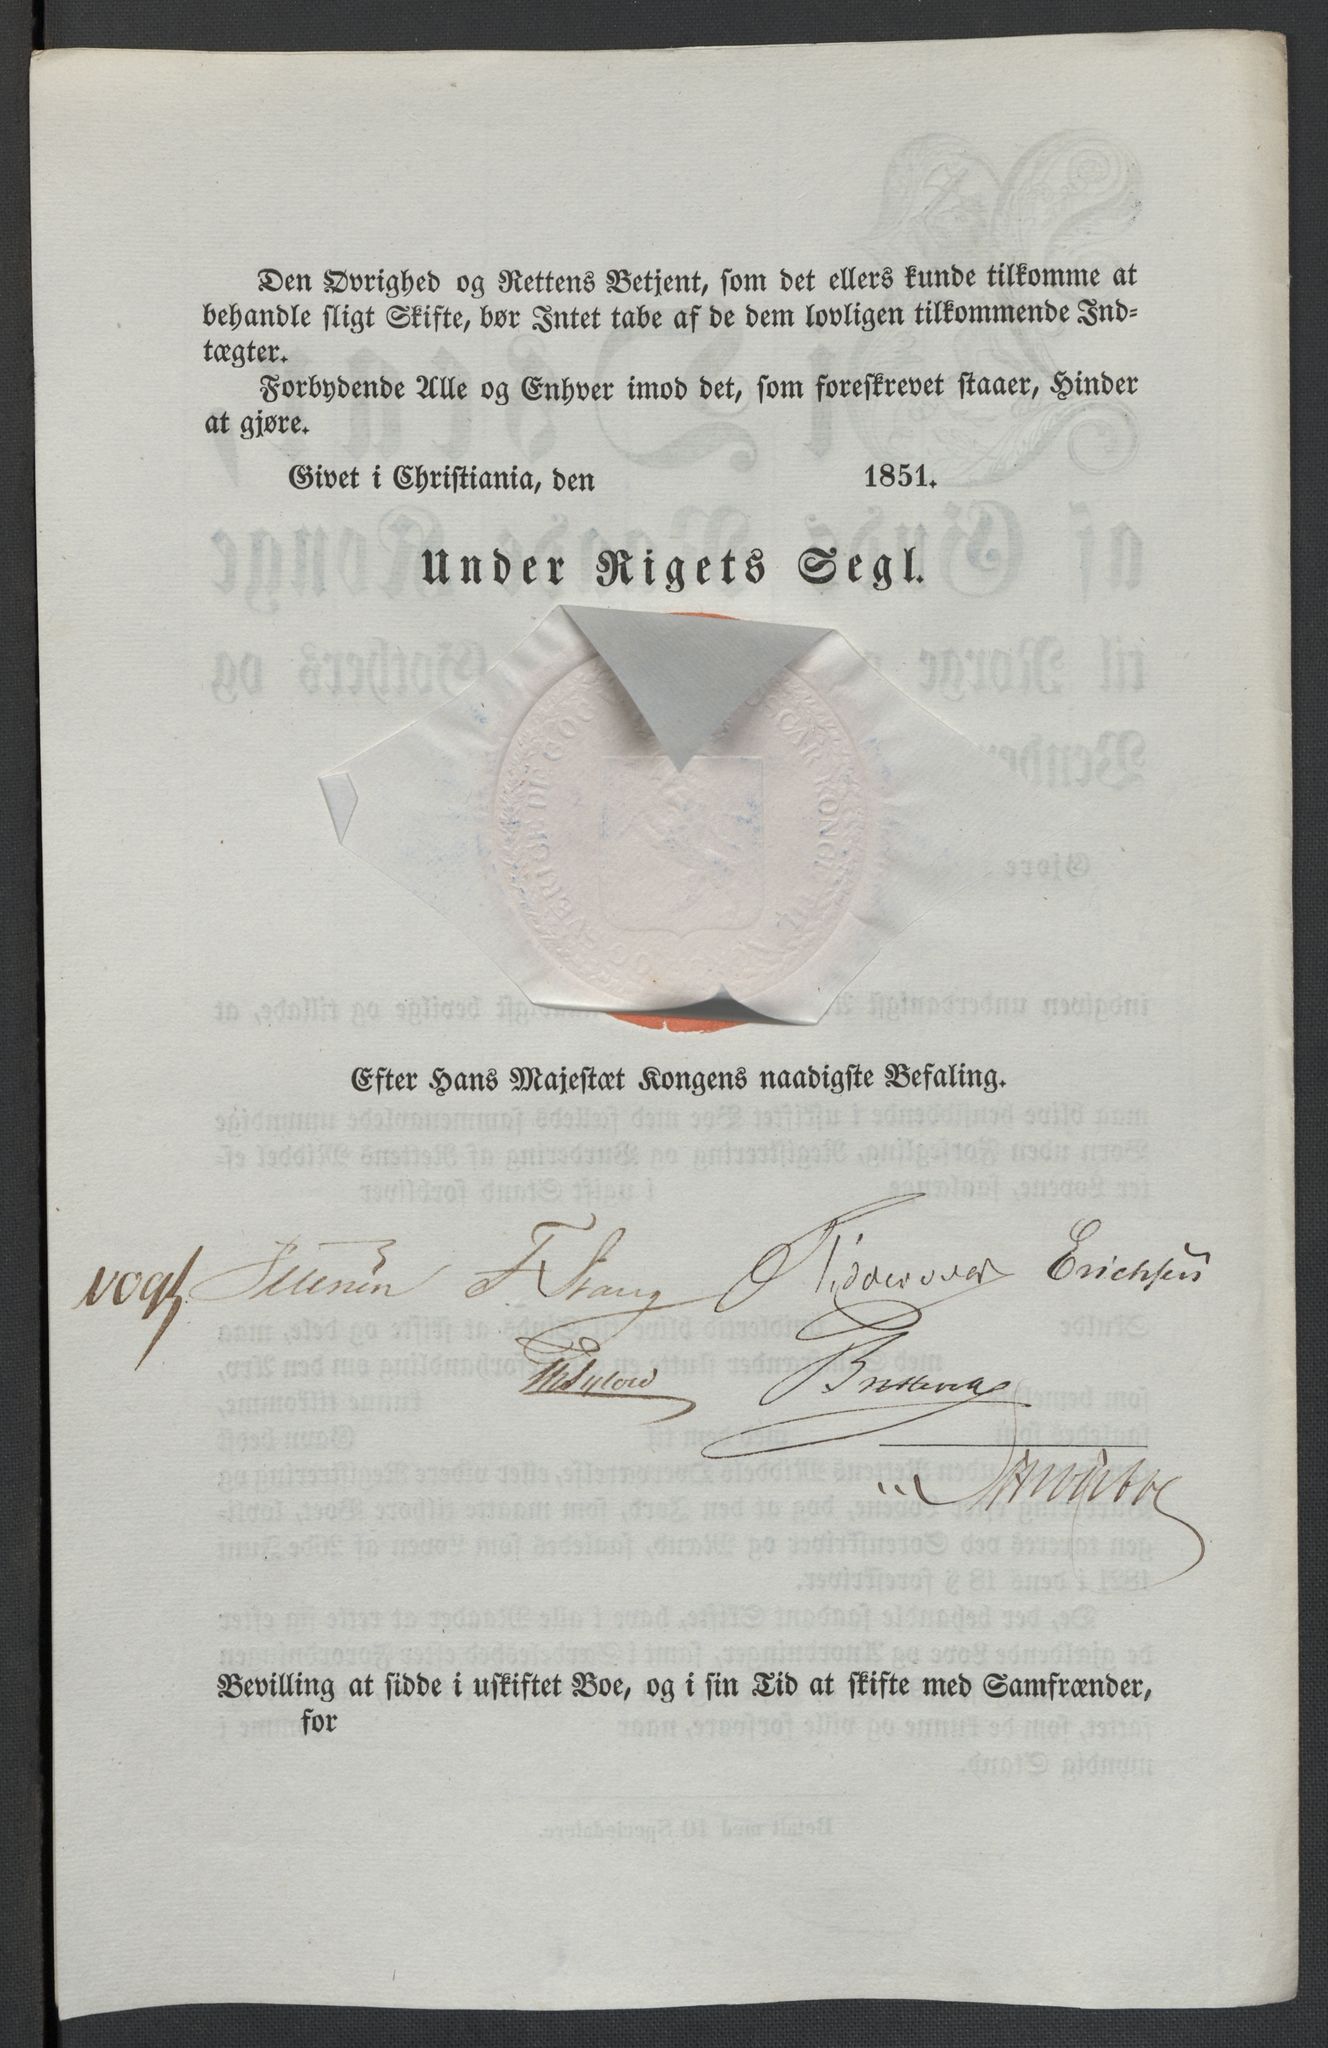 Den Øvrighed og Rettens Betjent, som det ellers kunde tilkomme at
behandle sligt Skifte, bør Intet tabe af de dem lovligen tilkommende Ind-
tægter.
Forbydende Alle og Enhver imod det, som foreskrevet staaer, Hinder
at gjøre.
Givet i Christiania, den 1851.
Under Rigets Segl.
Efter Hans Majestæt Kongens naadigste Befaling.
Vogt F Stang Fidderwold Erichsen
Bretteville
Bevilling at sidde i uskiftet Boe, og i sin Tid at skifte med Samfrænder,
for